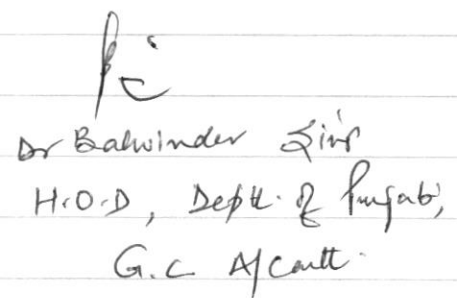 Dr Balwinder Singh
H.O.D, Deptt. of Punjabi,
G.C. A/Cantt.